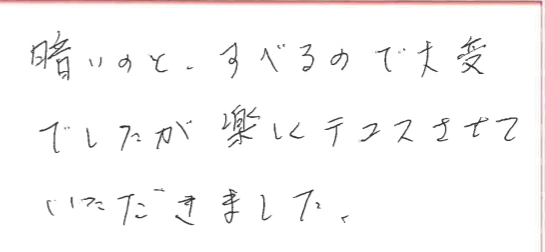 暗いのと、すべるので大変
でしたが楽しくテコスさせて
いただきました、